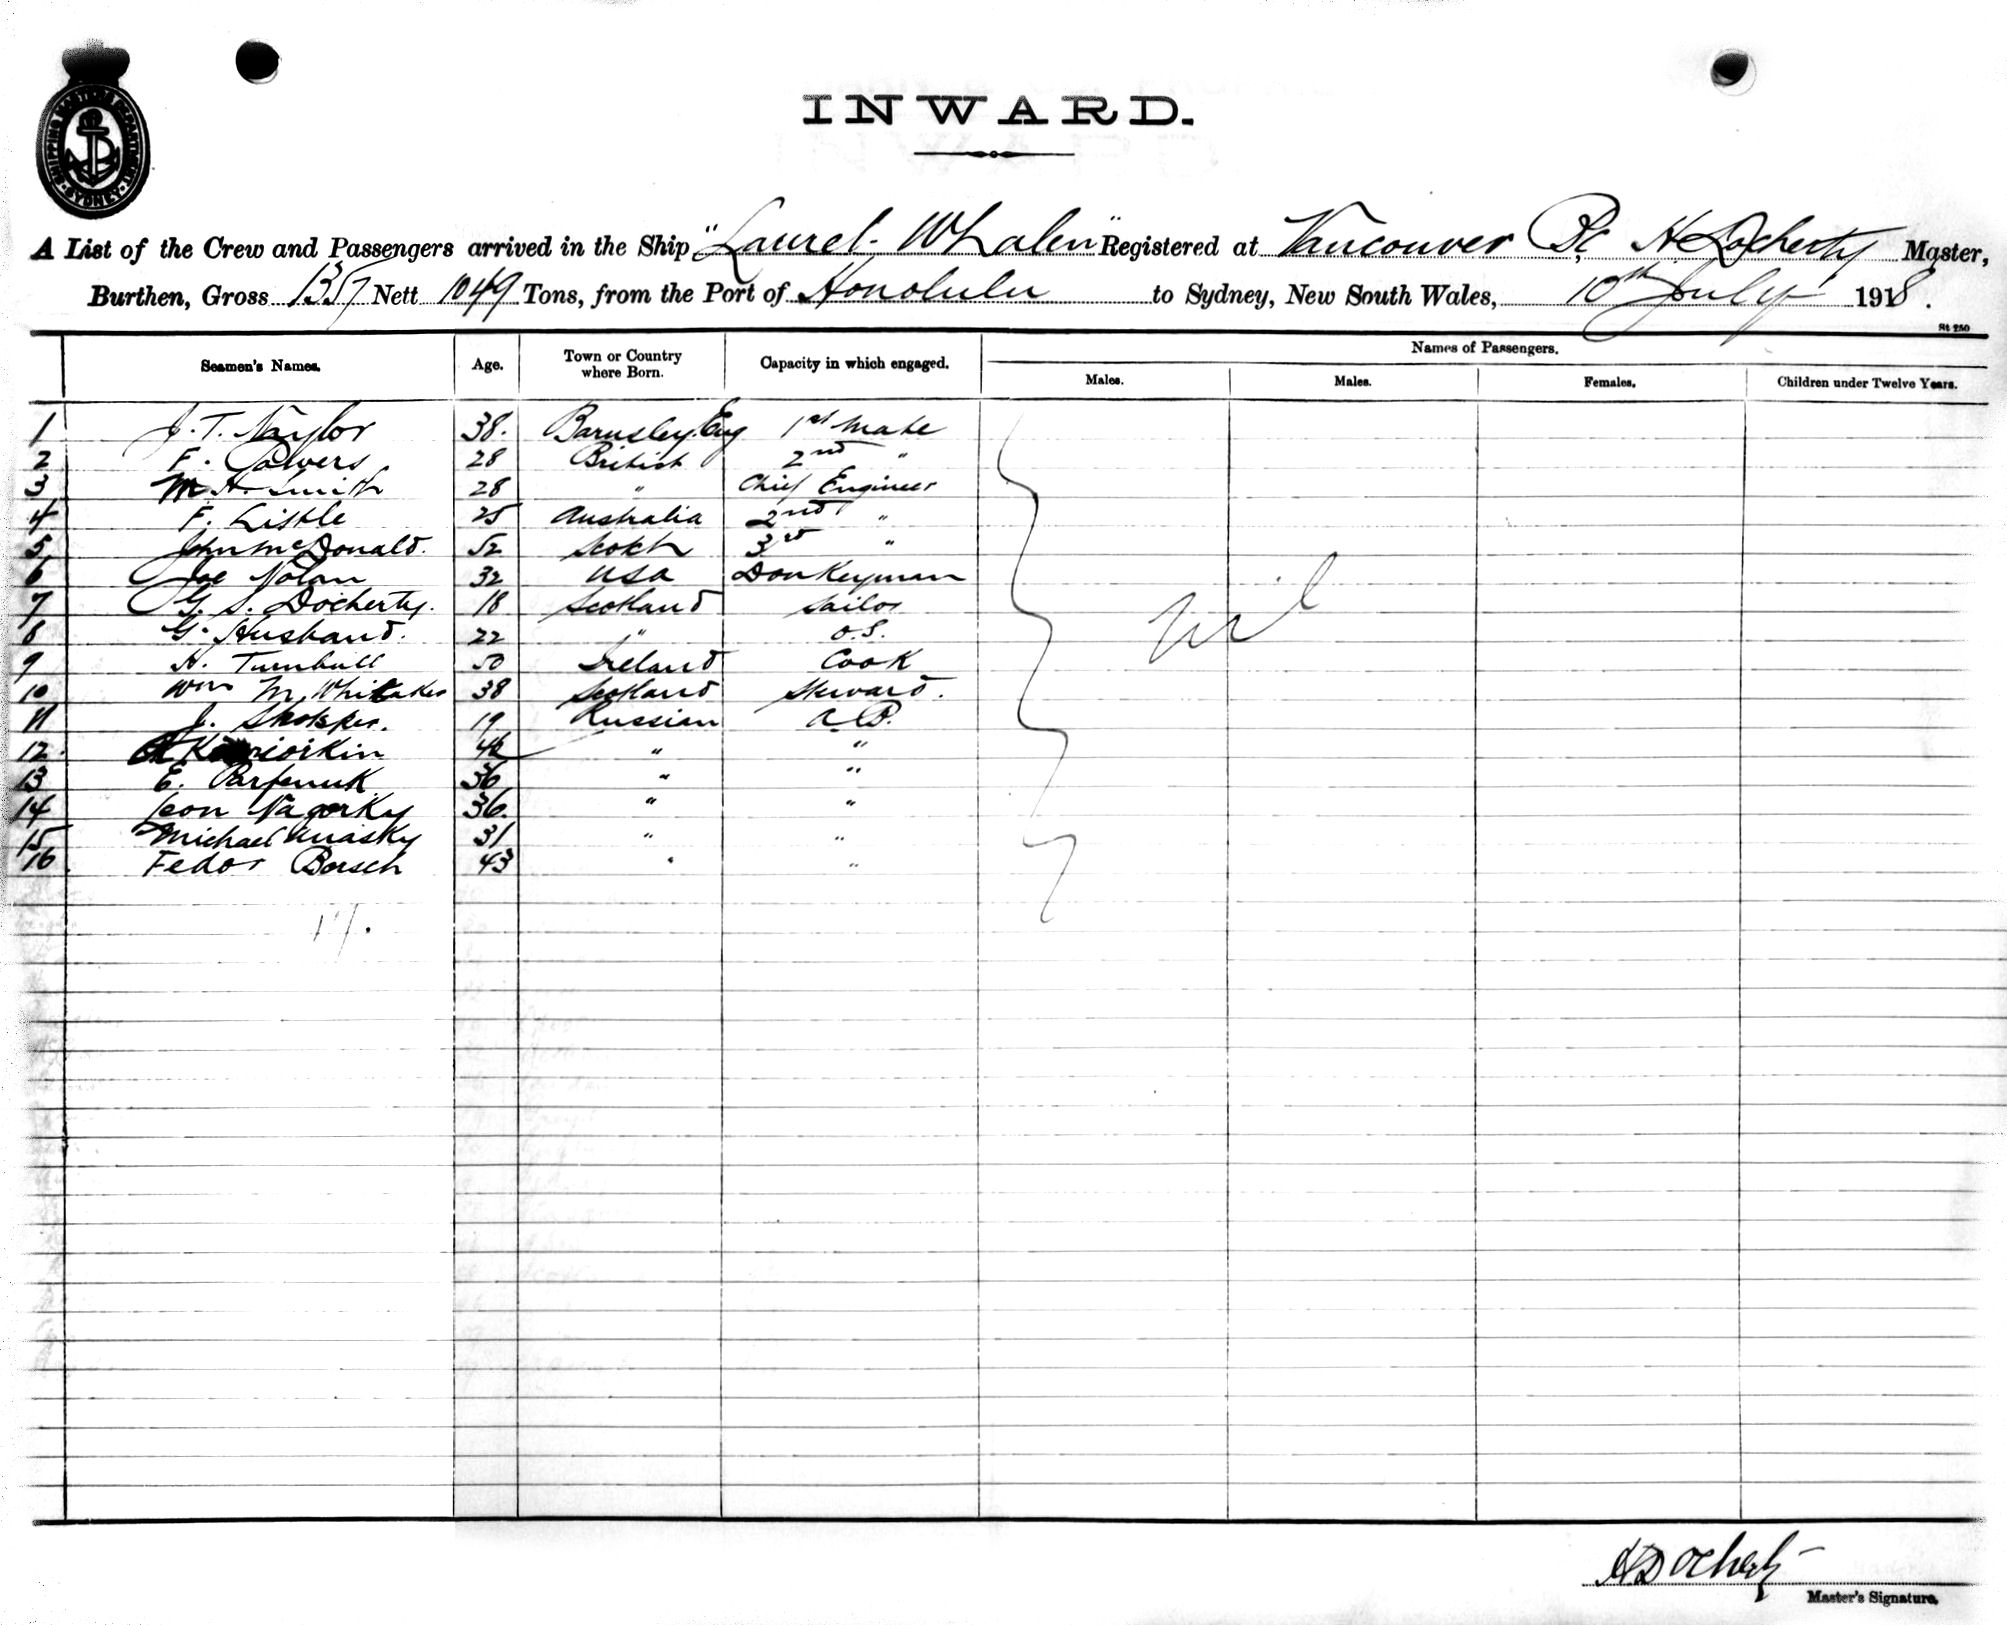 SHIPPING MASTER'S DEPARTMENT
SYDNEY
INWARD.
A List of the Crew and Passengers arrived in the Ship "Laurel Whalen" Registered at Vancouver B.C. H Docherty Master,
Burthen, Gross 1357 Nett 1049 Tons, from the Port of Honolulu to Sydney, New South Wales, 10th July 1918.
St 250
Seamen's Names. Age. Town or Country where Born. Capacity in which engaged. Names of Passengers.
Males. Males. Females. Children under Twelve Years.
1 J. T. Naylor 38. Barnsley. Eng 1st Mate
2 F. Powers 28 British 2nd "
3 M. H. Smith 28 " Chief Engineer
4 F. Listle 25 Australia 2nd "
5 John McDonald. 52 Scotch 3rd "
6 Joe Nolan 32 USA Donkeyman
7 G. S. Docherty. 18 Scotland Sailor
8 G. Husband. 22 " O.S.
Nil
9 H. Turnbull 50 Ireland Cook
10 Wm M. Whitaker 38 Scotland Steward.
11 J. 19 Russian A.B.
12 " "
13 E. Parfenuk 36 " "
14 Leon Nagorky 36. " "
15 Michael 31 " "
16 Fedor Borsch 43 " "
17.
H Docherty
Master's Signature.